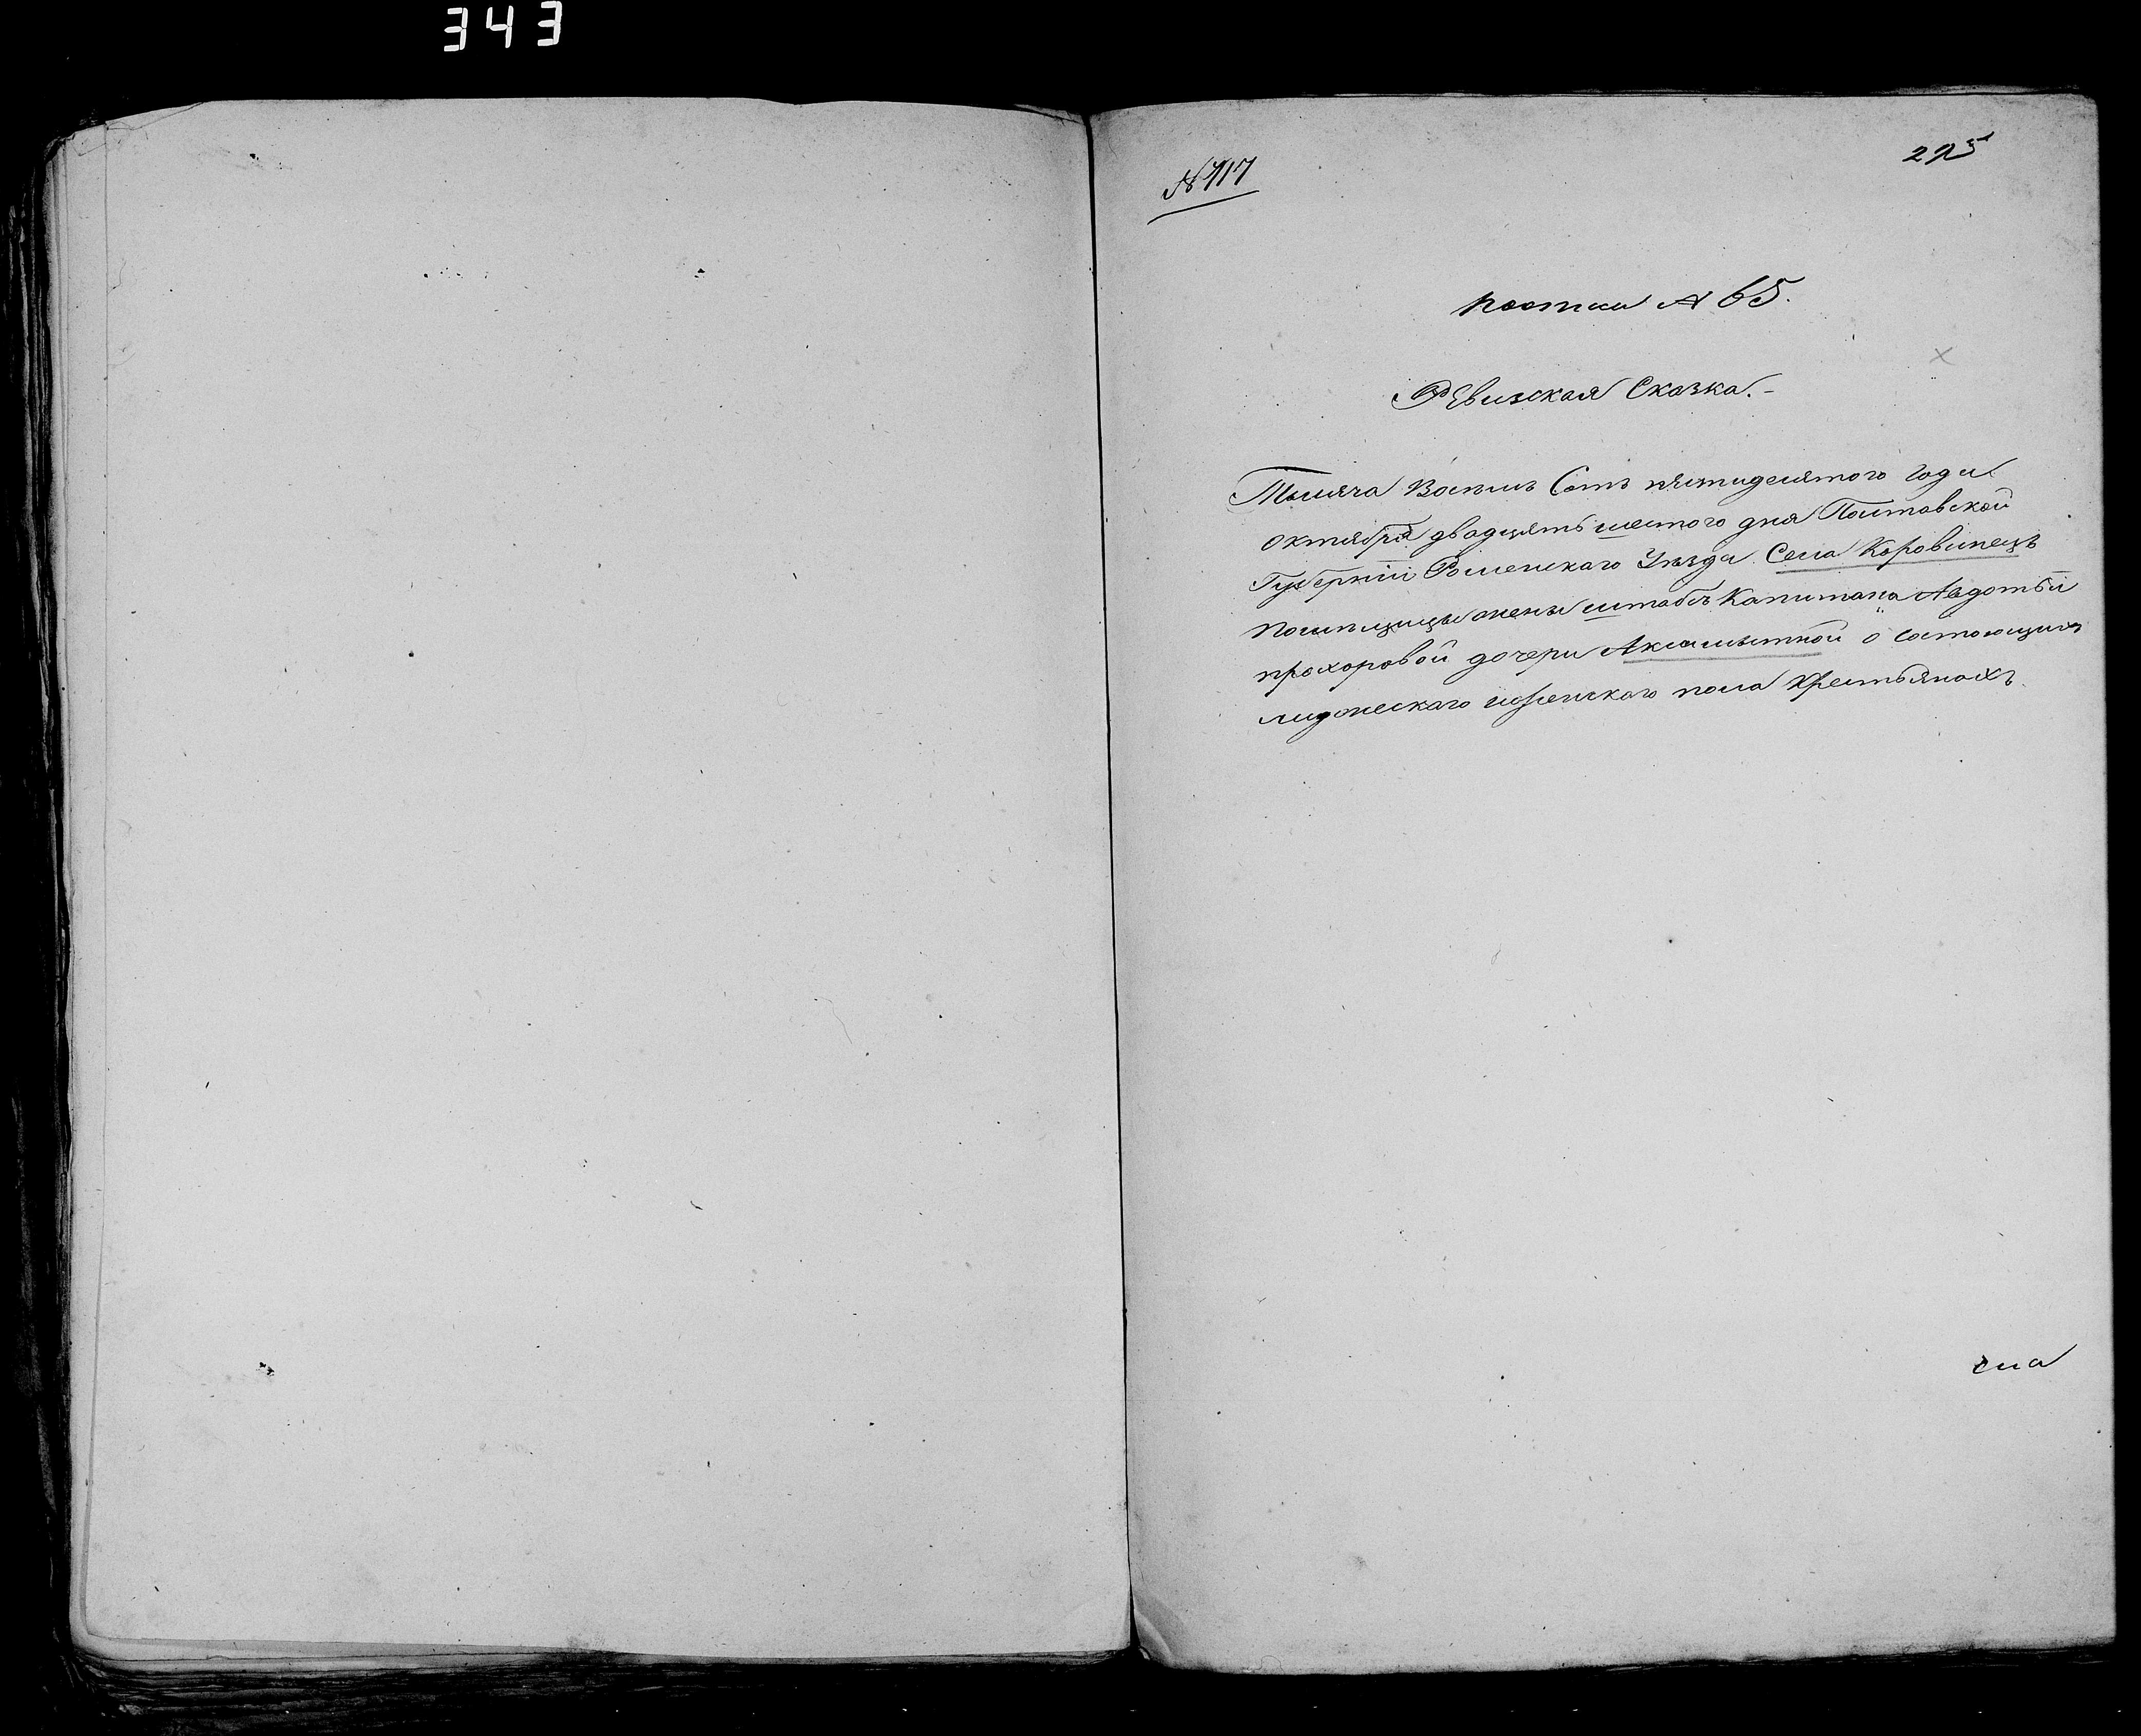 343
№ 417
225
почтии № 65.
Ревизская Сказка.-
Тысяча Восемь Сотъ пятидесятого года
октября двадцять шестого дня Полтавской
Губерніи Роменскаго Уезда Села Коровинецъ
помещицы жены штабсъ Капитана Авдотьи
прохоровой дочери Аксамытной о состоющихъ
мужескаго иженскаго пола Крестьянахъ.